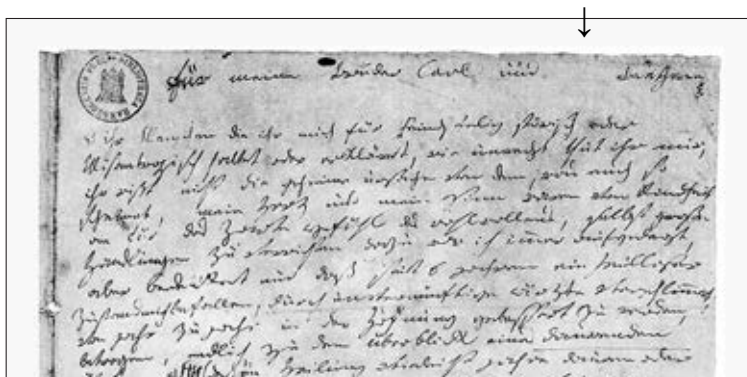 für meine Brüder Carl und
o ihr Menschen die ihr mich für feindseelig störisch oder
Misantropisch haltet oder erkläret, wie unrecht thut ihr mir,
ihr wißt nicht die geheime ursache von dem, was euch so
scheinet, mein Herz und mein Sinn waren von Kindheit
an für das Zarte gefühl des wohlwollens, selbst große
Handlungen zu verrichten dazu war ich immer aufgelegt,
aber bedenket nur daß seit 6 jahren ein heilloser
Zustand mich befallen, durch unvernünftige ärzte verschlimmert,
von jahr zu jahr in der Hofnung gebessert zu werden,
betrogen, endlich zu dem überblick eines daurenden
Heilung vieleicht jahre dauren oder